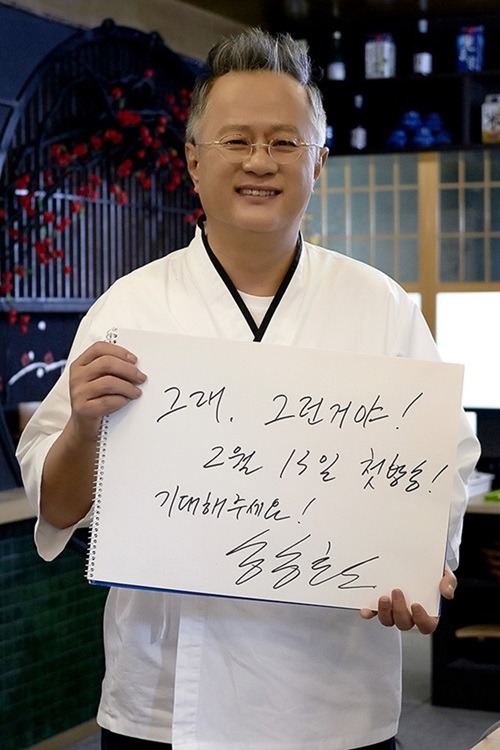 그래, 그런거야!
2월 13일 첫방송!
기대해주세요!
송승환